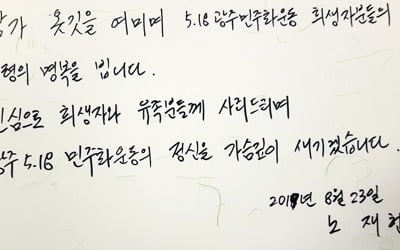 삼가 옷깃을 여미며 5.18 광주민주화운동 희생자분들의
령의 명복을 빕니다.
진심으로 희생자와 유족분들께 사죄드리며
광주 5.18 민주화운동의 정신을 가슴깊이 새기겠습니다.
2019년 8월 23일
노 재헌